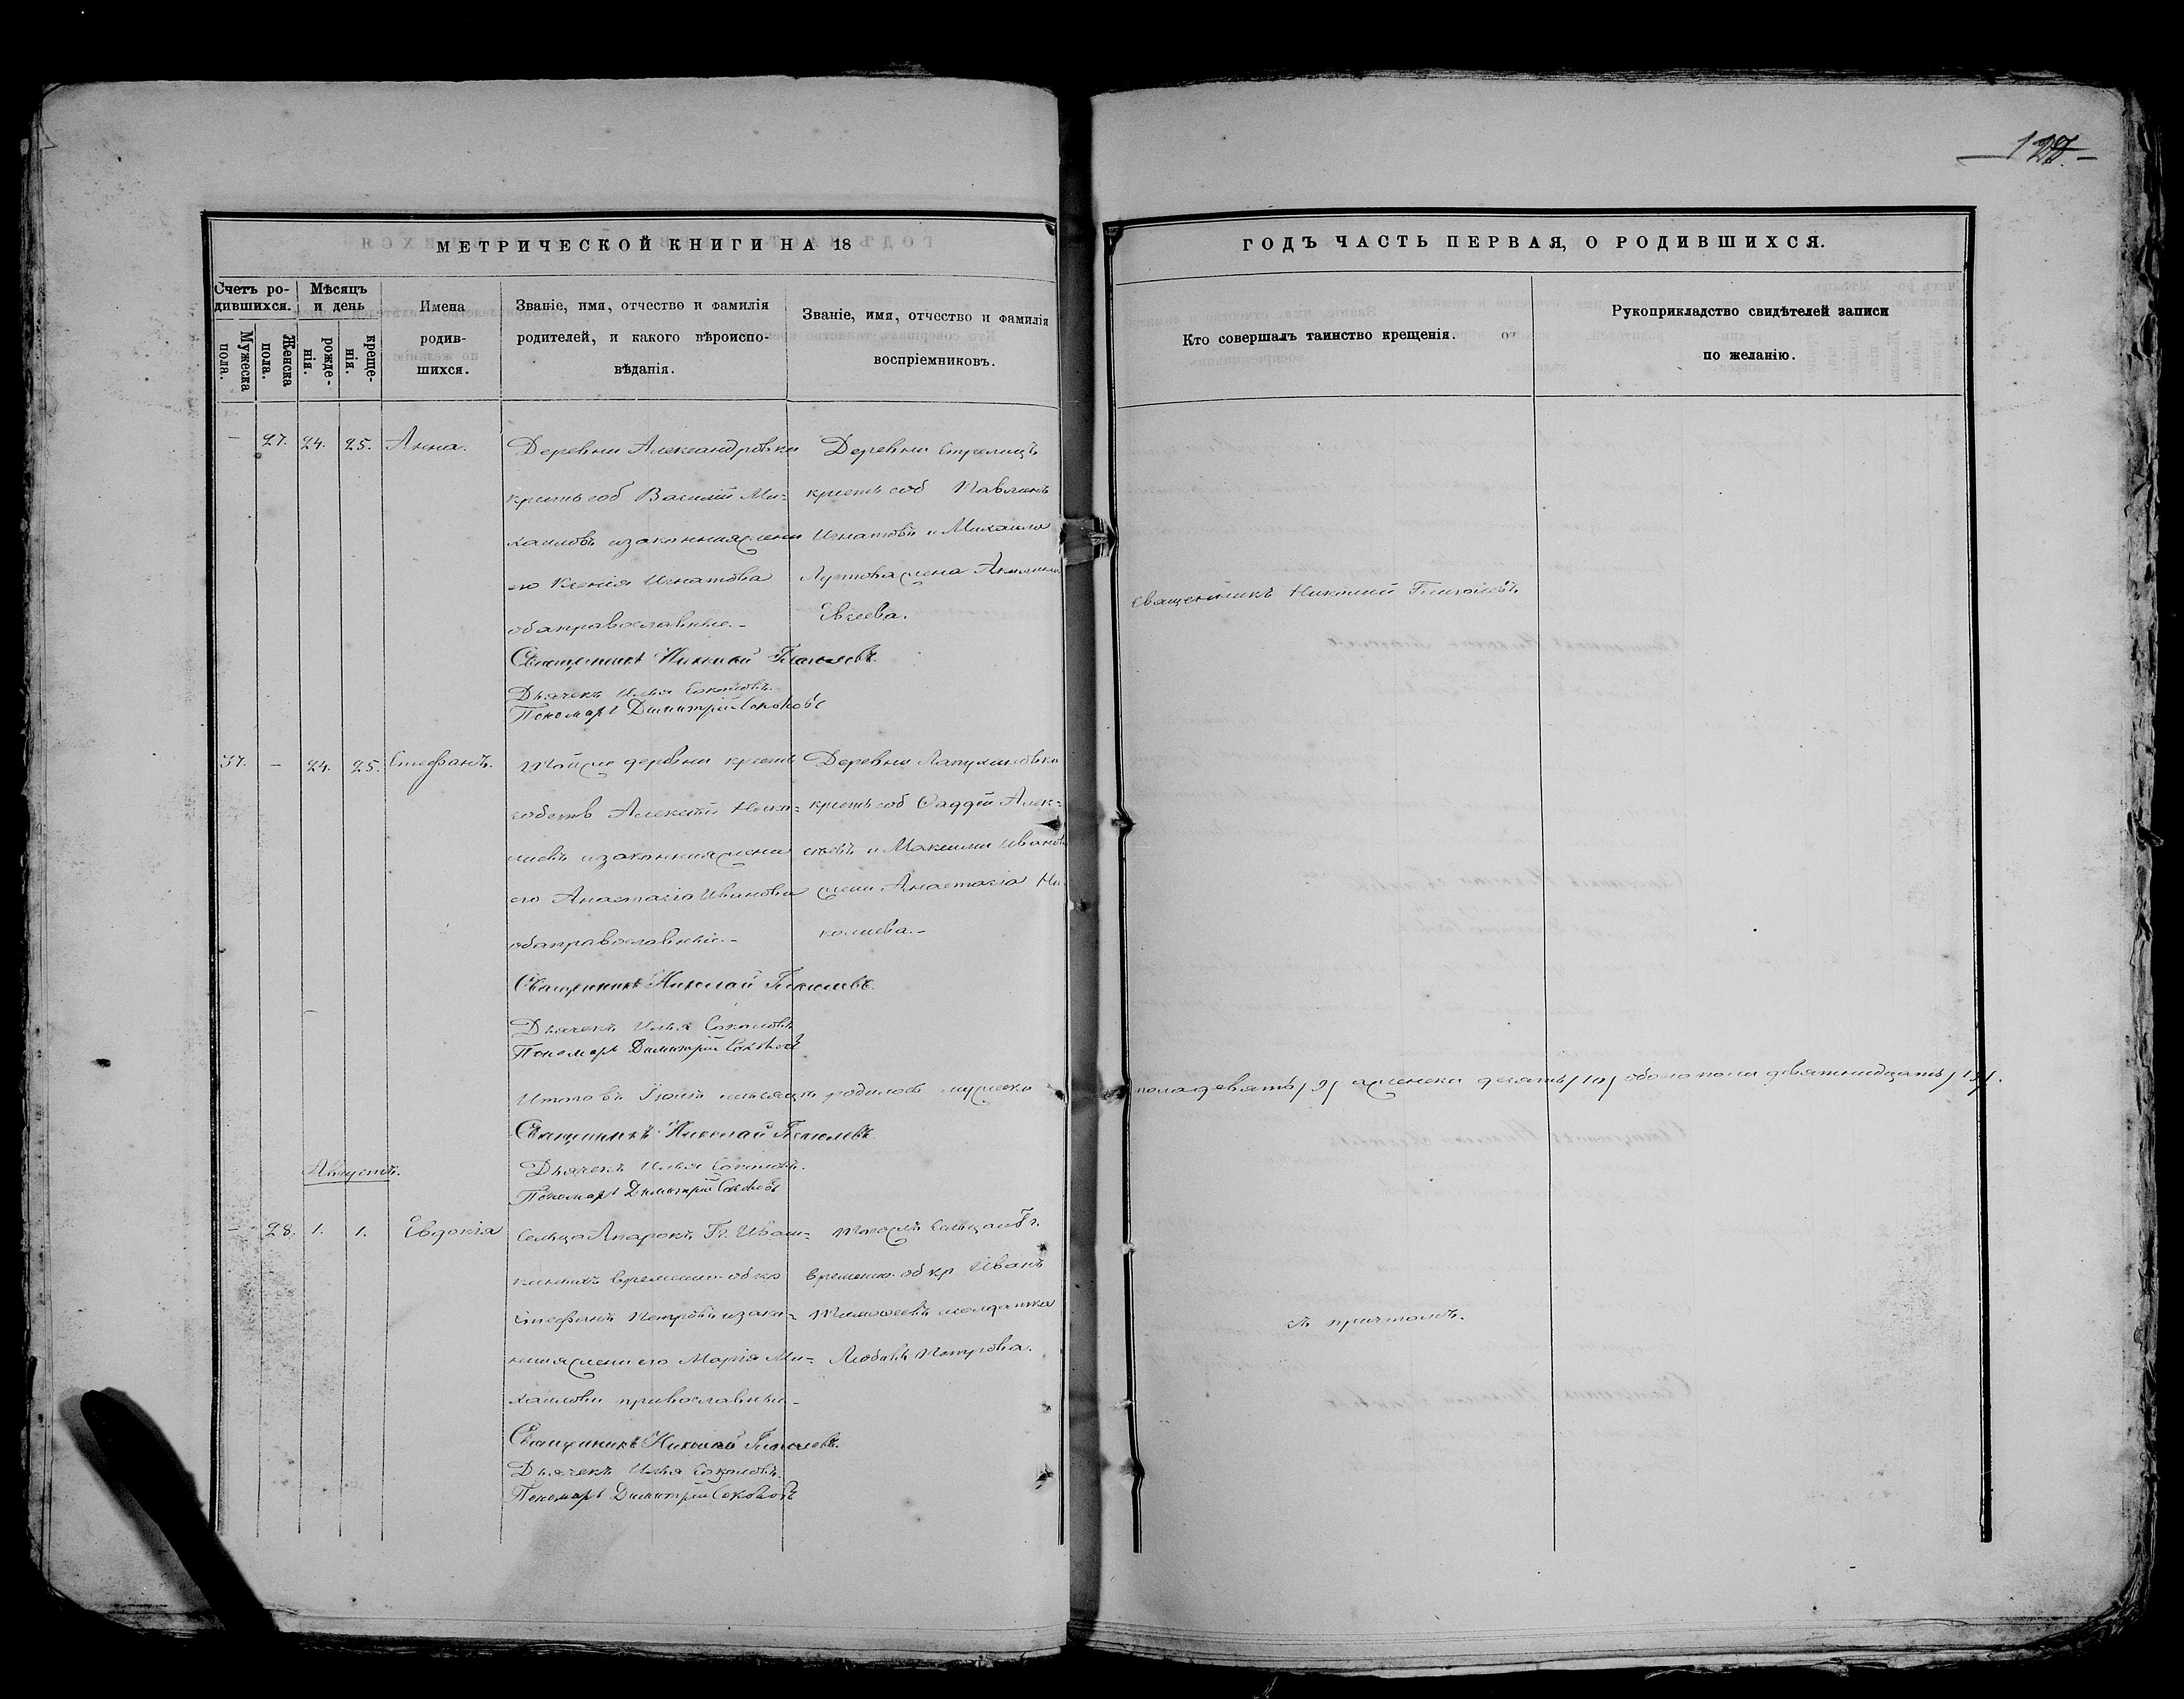 128.
МЕТРИЧЕСКОЙ КНИГИ НА 18
ГОДЪ ЧАСТЬ ПЕРВАЯ, О РОДИВШИХСЯ.
Счетъ ро-
дившихся.
Мужеска
пола.
Женска
пола.
Мѣсяцъ
и день
рожде-
нія.
креще-
нія.
Имена
родив-
шихся.
Званіе, имя, отчество и фамилія
родителей, и какого вѣроиспо-
вѣданія.
Званіе, имя, отчество и фамилія
воспріемниковъ.
Кто совершалъ таинство крещенія.
Рукоприкладство свидѣтелей записи
по желанію.
— 27. 24. 25. Анна.
Деревни Александровки
крестьсоб Василій Ми-
хаиловъ изаконнаяжена
его Ксенія Игнатова
обаправославные.-
Священникъ Николай
Дьячекъ Илья Соколовъ.
Пономарь Димитрій Соколовъ
Деревни Стрелицъ
крестьсоб Павлинъ
Игнатовъ и Михаила
жена
Евсеева.
Священникъ Николай
37. — 24. 25. Стефанъ.
Тойже деревни крестьян
собств Алексѣй Нико-
лаевъ изаконнаяжена
его Анастасія Иванова
обаправославные.-
Священникъ Николай
Дьячекъ Илья Соколовъ
Пономарь Димитрій Соколовъ
Деревни
крестьсоб Фаддѣй Алек-
сѣевъ и Максима Иванова
жена Анастасія Ни-
колаева.-
Итого въ Іюлѣ мѣсяцѣ родилось мужеска
пола девять /9/ аженска десять /10/ обоего пола девятнадцать /19/.
Священникъ Николай
Дьячекъ Илья Соколовъ.
Пономарь Димитрій Соколовъ
Августъ.
— 28. 1. 1. Евдокія
Сельца Апарокъ Гг. Иваш-
киныхъ временно-обкр
Стефанъ Петровъ изако-
ннаяжена его Марія Ми-
хаилова православные.-
Священникъ Николай
Дьячекъ Илья Соколовъ.
Пономарь Димитрій Соколовъ
Тогожъ Сельца иГг.
временно-обкр Иванъ
Тимофеевъ исолдатка
Любовь Петрова.
съ причтомъ.